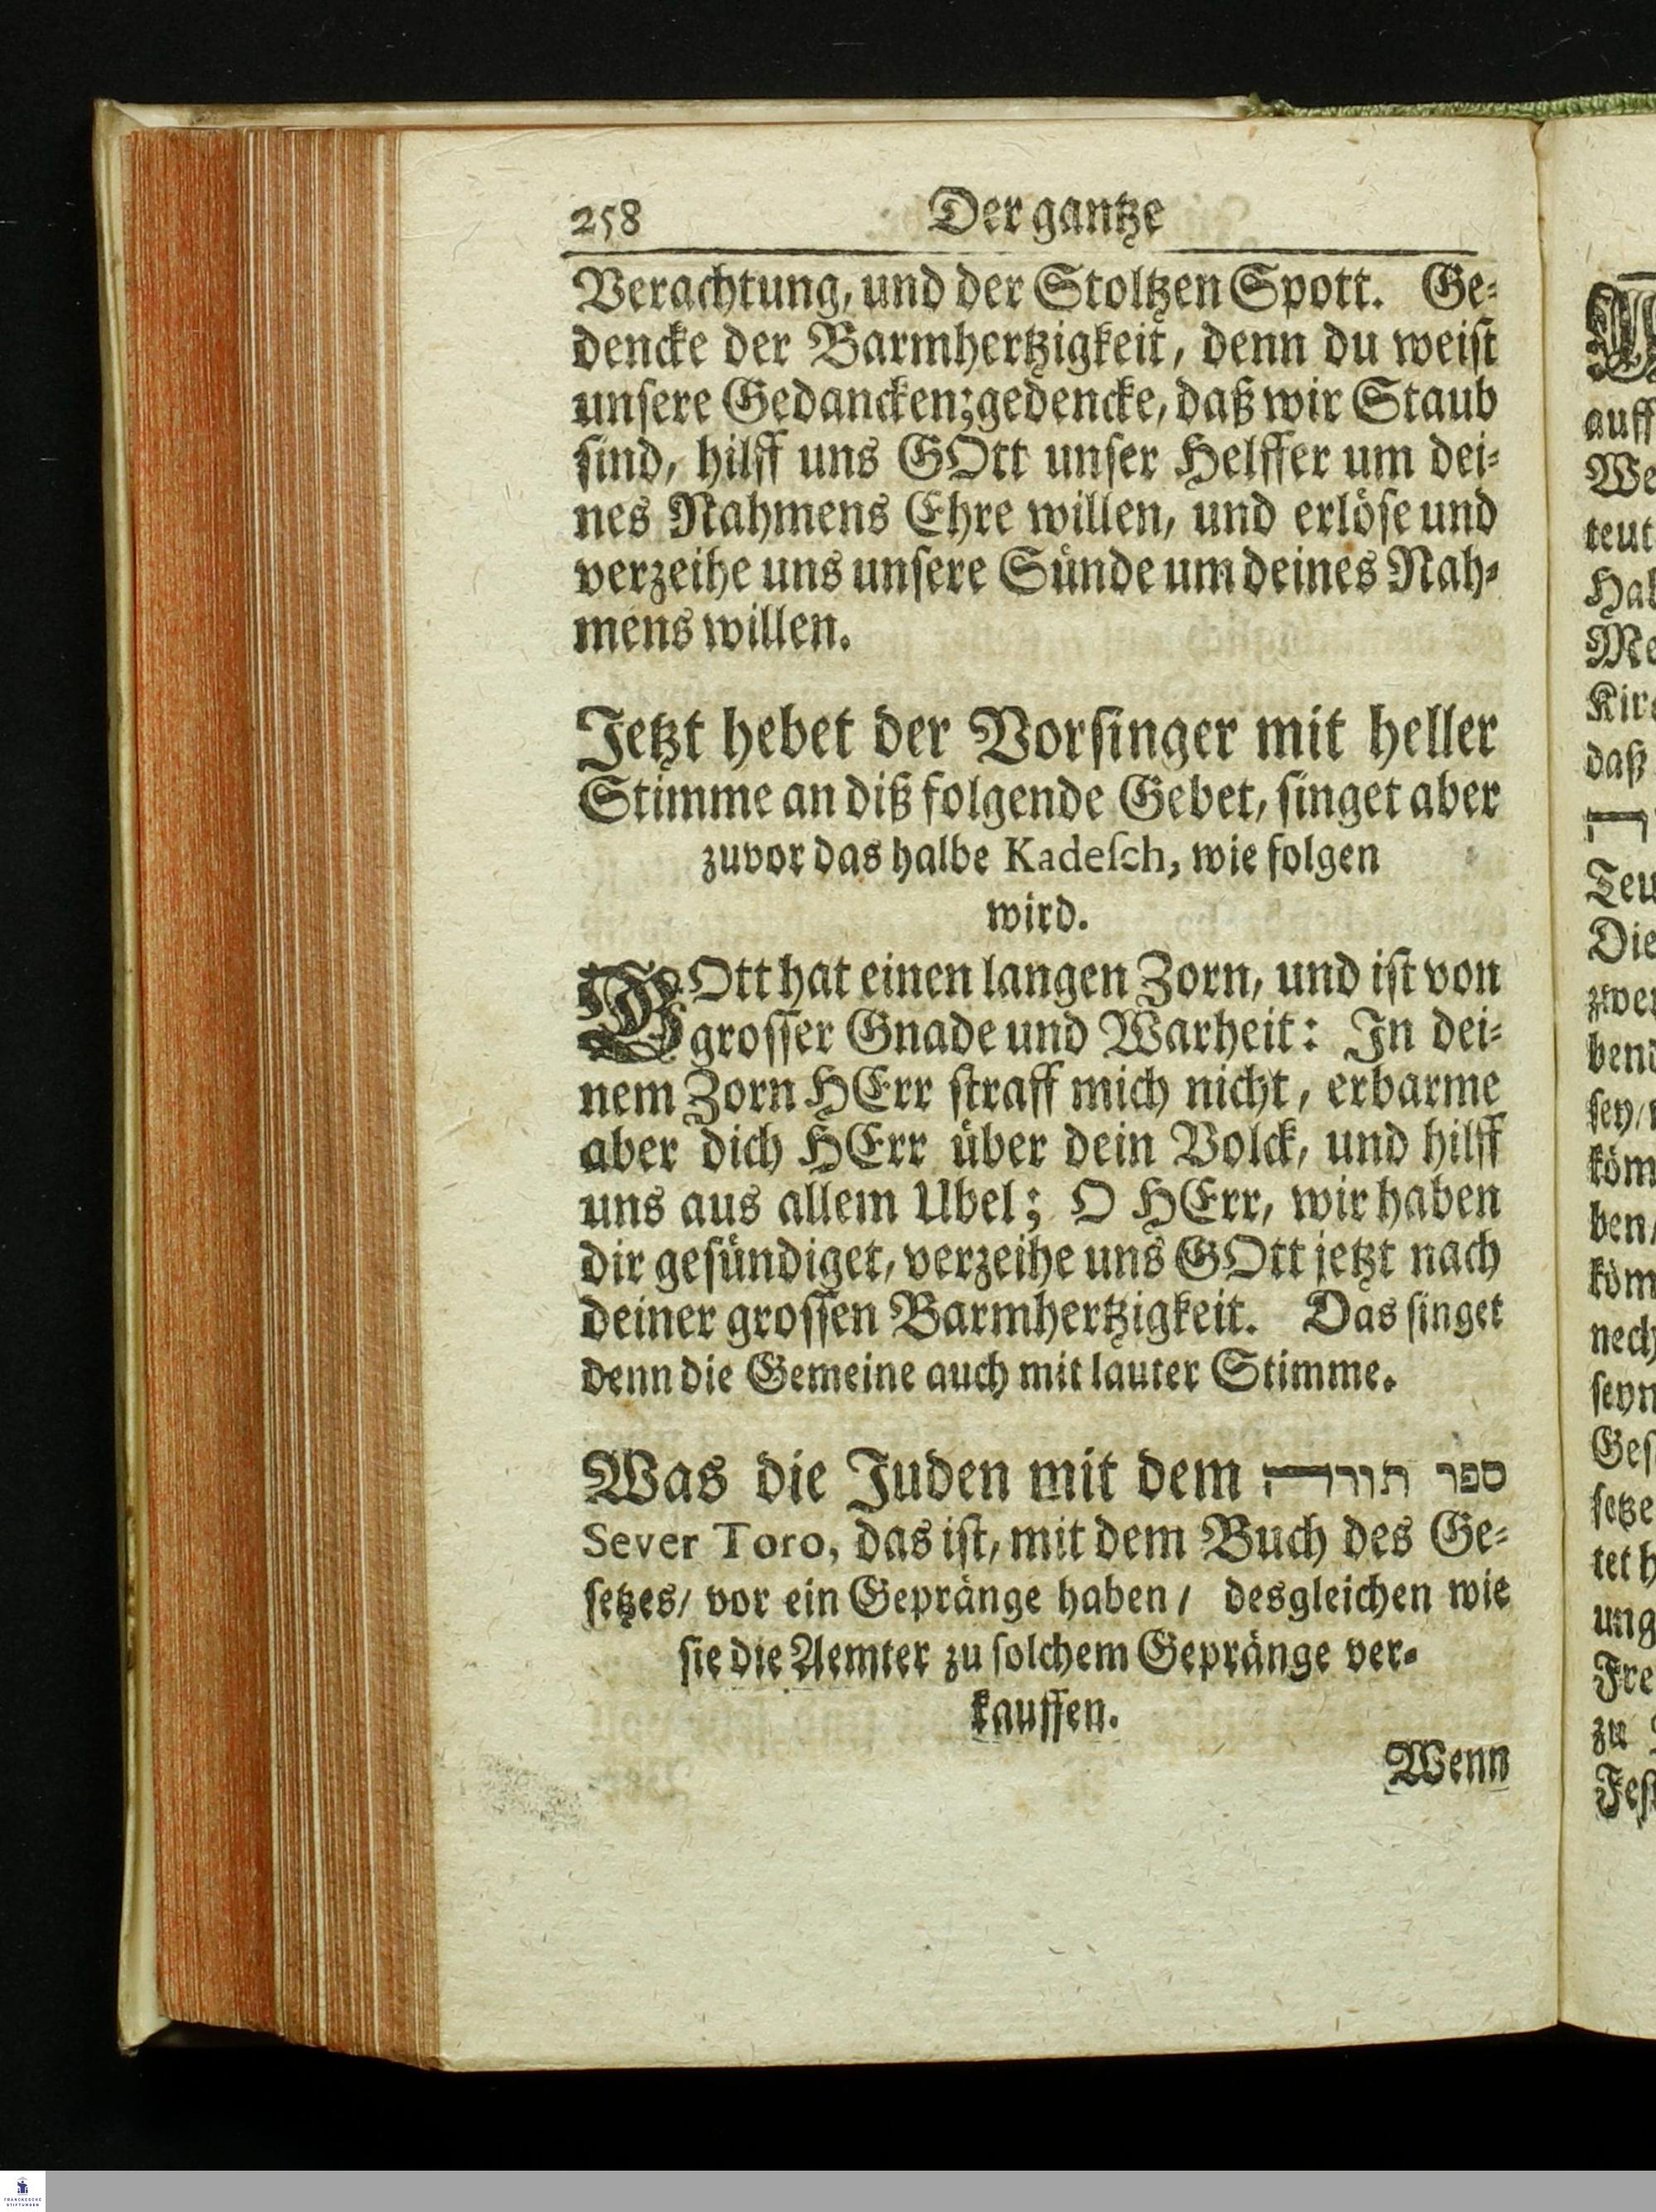 258 Der gantze
Verachtung, und der Stoltzen Spott. Ge-
dencke der Barmhertzigkeit, denn du weist
unsere Gedancken; gedencke, daß wir Staub
sind, hilff uns GOtt unser Helffer um dei-
nes Nahmens Ehre willen, und erlöse und
verzeihe uns unsere Sünde um deines Nah-
mens willen.
Jetzt hebet der Vorsinger mit heller
Stimme an diß folgende Gebet, singet aber
zuvor das halbe Kadesch, wie folgen
wird.
GOtt hat einen langen Zorn, und ist von
grosser Gnade und Warheit: In dei-
nem Zorn HErr straff mich nicht, erbarme
aber dich HErr über dein Volck, und hilff
uns aus allem Ubel; O HErr, wir haben
dir gesündiget, verzeihe uns GOtt jetzt nach
deiner grossen Barmhertzigkeit. Das singet
denn die Gemeine auch mit lauter Stimme.
Was die Juden mit dem ספר תורה
Sever Toro, das ist, mit dem Buch des Ge-
setzes/ vor ein Gepränge haben/ desgleichen wie
sie die Aemter zu solchem Gepränge ver-
kauffen.
Wenn
auff
We
teut
Hal
Me
Kir
daß
Teu
Die
zwe
ben
sey/
köm
ben/
köm
nech
seyn
Ges
setze
tet h
ung
Fre
zu
Fes
FRANCKESCHE
STIFTUNGEN